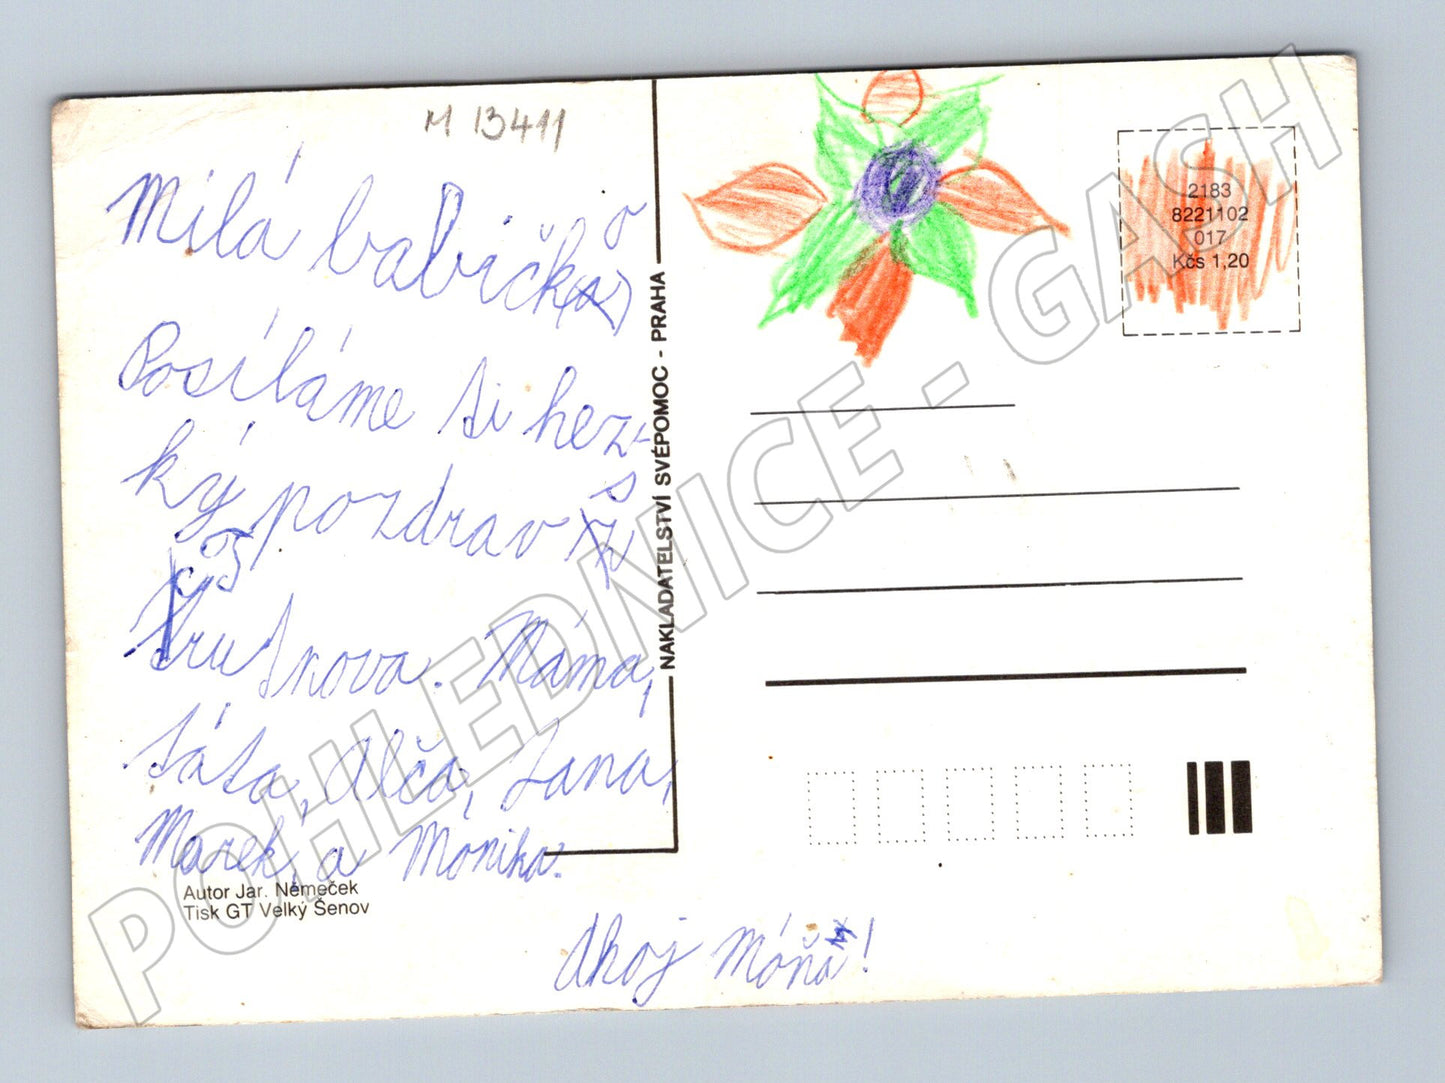 M 13411
Milá babičko
Posíláme ti hez-
ký pozdrav s
Trutnova. Máma,
táta, Alča, Jana,
Marek, a Mónika.
Autor Jar. Němeček
Tisk GT Velký Šenov
Ahoj Móňa!
NAKLADATELSTVÍ SVÉPOMOC - PRAHA
2183
8221102
017
Kčs 1,20
POHLEDNICE - GASH